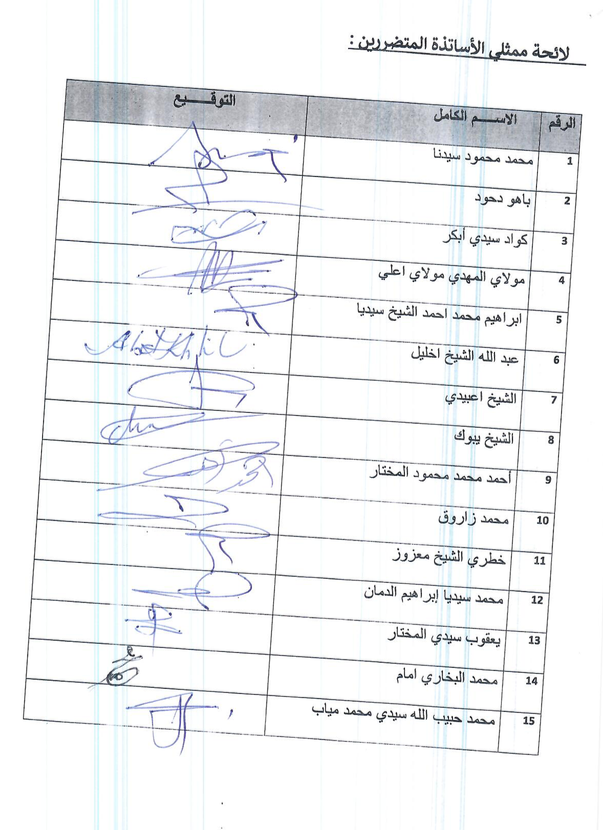 لائحة ممثلي الأساتذة المتضررين :
الرقم الاسم الكامل التوقيع
1 محمد محمود سيدنا
2 باهو دحود
3 كواد سيدي أبكر
4 مولاي المهدي مولاي اعلي
5 ابراهيم محمد احمد الشيخ سيديا
6 عبد الله الشيخ اخليل
7 الشيخ اعبيدي
8 الشيخ يبوك
9 أحمد محمد محمود المختار
10 محمد زاروق
11 خطري الشيخ معزوز
12 محمد سيديا إبراهيم الدمان
13 يعقوب سيدي المختار
14 محمد البخاري امام
15 محمد حبيب الله سيدي محمد مياب